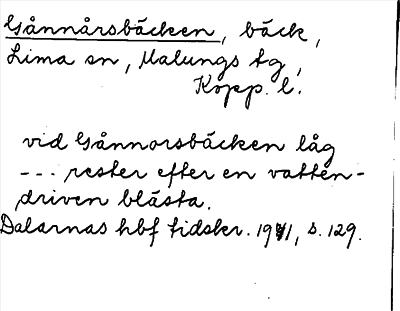 Gånnårsbäcken, bäck,
Lima sn, Malungs tg,
Kopp. l.
vid Gånnorsbäcken låg
--- rester efter en vatten-
driven blästa.
Dalarnas hbf tidskr. 1941, s. 129.